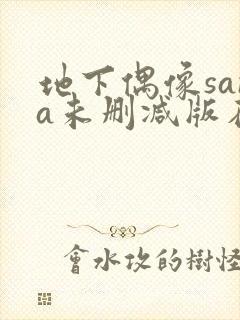 地下偶像sa
a未删减版
會水攻的樹怪